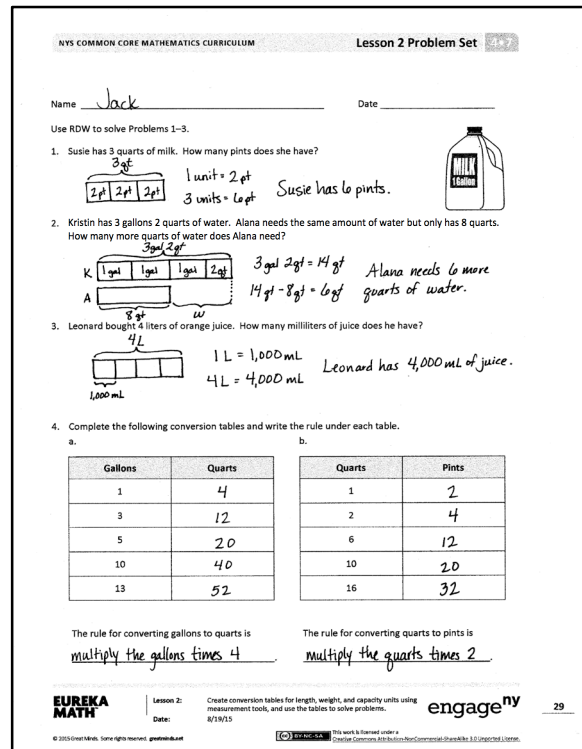 NYS COMMON CORE MATHEMATICS CURRICULUM Lesson 2 Problem Set 4•7
Name Jack Date
Use RDW to solve Problems 1–3.
1. Susie has 3 quarts of milk. How many pints does she have?
3qt
2pt 2pt 2pt
1 unit = 2pt
3 units = 6pt
Susie has 6 pints.
MILK
1 Gallon
2. Kristin has 3 gallons 2 quarts of water. Alana needs the same amount of water but only has 8 quarts.
How many more quarts of water does Alana need?
3gal 2qt
K 1gal 1gal 1gal 2qt
A
8qt w
3gal 2qt = 14 qt
14 qt - 8qt = 6qt
Alana needs 6 more
quarts of water.
3. Leonard bought 4 liters of orange juice. How many milliliters of juice does he have?
4L
1,000 mL
1L = 1,000 mL
4L = 4,000 mL
Leonard has 4,000 mL of juice.
4. Complete the following conversion tables and write the rule under each table.
a. b.
Gallons Quarts Quarts Pints
1 4 1 2
3 12 2 4
5 20 6 12
10 40 10 20
13 52 16 32
The rule for converting gallons to quarts is
multiply the gallons times 4.
The rule for converting quarts to pints is
multiply the quarts times 2.
EUREKA
MATH
Lesson 2: Create conversion tables for length, weight, and capacity units using
measurement tools, and use the tables to solve problems.
Date: 8/19/15
engageny 29
© 2015 Great Minds. Some rights reserved. greatminds.net
CC BY-NC-SA
This work is licensed under a
Creative Commons Attribution-NonCommercial-ShareAlike 3.0 Unported License.